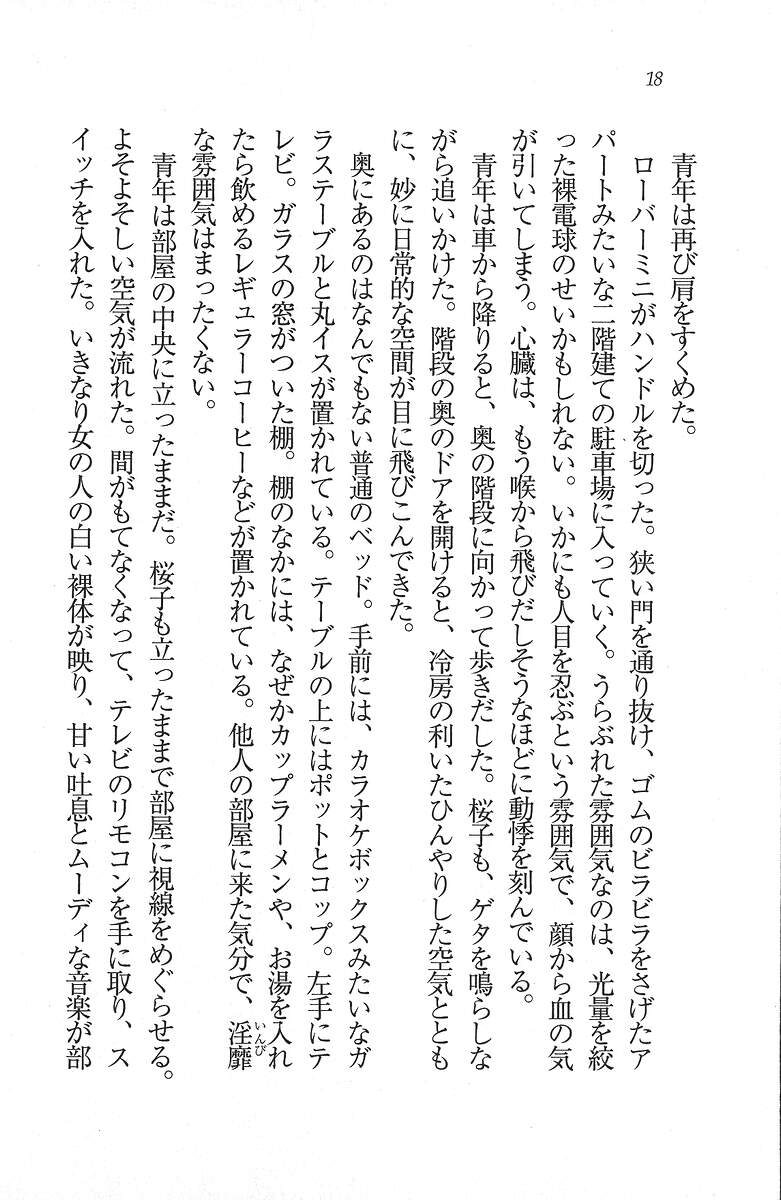 18
青年は再び肩をすくめた。
ローバーミニがハンドルを切った。狭い門を通り抜け、ゴムのビラビラをさげたア
パートみたいな二階建ての駐車場に入っていく。うらぶれた雰囲気なのは、光量を絞
った裸電球のせいかもしれない。いかにも人目を忍ぶという雰囲気で、顔から血の気
が引いてしまう。心臓は、もう喉から飛びだしそうなほどに動悸を刻んでいる。
青年は車から降りると、奥の階段に向かって歩きだした。桜子も、ゲタを鳴らしな
がら追いかけた。階段の奥のドアを開けると、冷房の利いたひんやりした空気ととも
に、妙に日常的な空間が目に飛びこんできた。
奥にあるのはなんでもない普通のベッド。手前には、カラオケボックスみたいなガ
ラステーブルと丸イスが置かれている。テーブルの上にはポットとコップ。左手にテ
レビ。ガラスの窓がついた棚。棚のなかには、なぜかカップラーメンや、お湯を入れ
たら飲めるレギュラーコーヒーなどが置かれている。他人の部屋に来た気分で、淫靡
いんび
な雰囲気はまったくない。
青年は部屋の中央に立ったままだ。桜子も立ったままで部屋に視線をめぐらせる。
よそよそしい空気が流れた。間がもてなくなって、テレビのリモコンを手に取り、ス
イッチを入れた。いきなり女の人の白い裸体が映り、甘い吐息とムーディな音楽が部